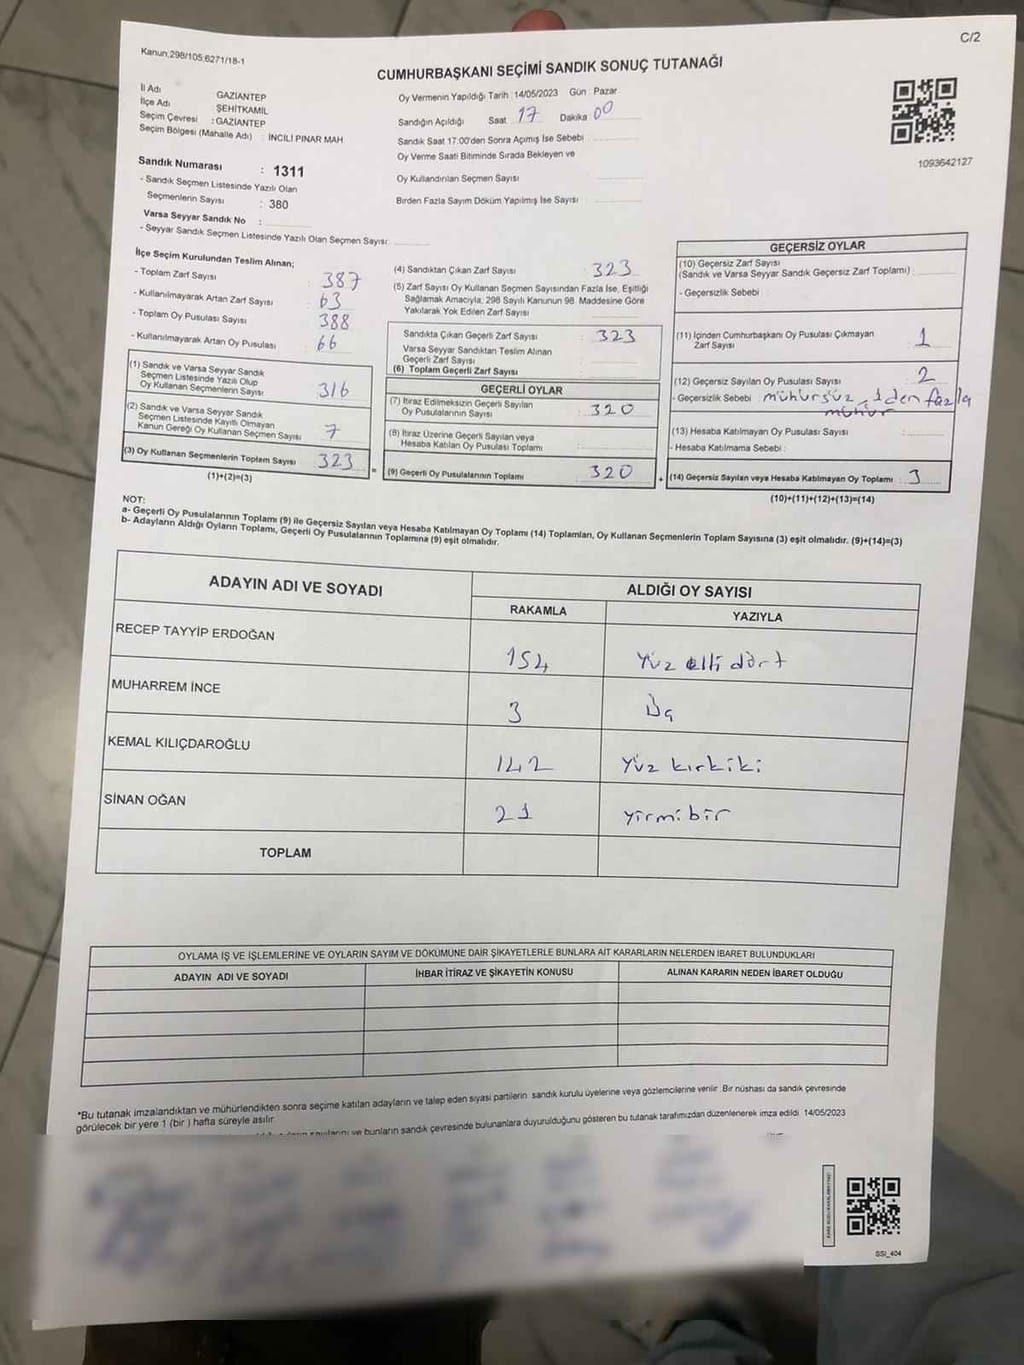 C/2
Kanun;298/105;6271/18-1
CUMHURBAŞKANI SEÇİMİ SANDIK SONUÇ TUTANAĞI
İl Adı : GAZİANTEP
İlçe Adı : ŞEHİTKAMİL
Seçim Çevresi : GAZİANTEP
Seçim Bölgesi (Mahalle Adı) : İNCİLİ PINAR MAH
Oy Vermenin Yapıldığı Tarih : 14/05/2023 Gün : Pazar
Sandığın Açıldığı Saat 17 Dakika 00
Sandık Saat 17:00'den Sonra Açımış İse Sebebi :
Oy Verme Saati Bitiminde Sırada Bekleyen ve
Oy Kullandırılan Seçmen Sayısı
Birden Fazla Sayım Döküm Yapılmış İse Sayısı
1093642127
Sandık Numarası : 1311
- Sandık Seçmen Listesinde Yazılı Olan
Seçmenlerin Sayısı : 380
Varsa Seyyar Sandık No :
- Seyyar Sandık Seçmen Listesinde Yazılı Olan Seçmen Sayısı:
İlçe Seçim Kurulundan Teslim Alınan;
- Toplam Zarf Sayısı : 387
- Kullanılmayarak Artan Zarf Sayısı : 63
- Toplam Oy Pusulası Sayısı : 388
- Kullanılmayarak Artan Oy Pusulası : 66
(1) Sandık ve Varsa Seyyar Sandık
Seçmen Listesinde Yazılı Olup
Oy Kullanan Seçmenlerin Sayısı : 316
(2) Sandık ve Varsa Seyyar Sandık
Seçmen Listesinde Kayıtlı Olmayan
Kanun Gereği Oy Kullanan Seçmen Sayısı : 7
(3) Oy Kullanan Seçmenlerin Toplam Sayısı : 323
(1)+(2)=(3)
(4) Sandıktan Çıkan Zarf Sayısı : 323
(5) Zarf Sayısı Oy Kullanan Seçmen Sayısından Fazla İse, Eşitliği
Sağlamak Amacıyla; 298 Sayılı Kanunun 98. Maddesine Göre
Yakılarak Yok Edilen Zarf Sayısı :
Sandıkta Çıkan Geçerli Zarf Sayısı : 323
Varsa Seyyar Sandıktan Teslim Alınan
Geçerli Zarf Sayısı
(6) Toplam Geçerli Zarf Sayısı :
GEÇERLİ OYLAR
(7) İtiraz Edilmeksizin Geçerli Sayılan
Oy Pusulalarının Sayısı : 320
(8) İtiraz Üzerine Geçerli Sayılan veya
Hesaba Katılan Oy Pusulası Toplamı :
= (9) Geçerli Oy Pusulalarının Toplamı : 320
GEÇERSİZ OYLAR
(10) Geçersiz Zarf Sayısı
(Sandık ve Varsa Seyyar Sandık Geçersiz Zarf Toplamı) :
- Geçersizlik Sebebi :
(11) İçinden Cumhurbaşkanı Oy Pusulası Çıkmayan
Zarf Sayısı : 1
(12) Geçersiz Sayılan Oy Pusulası Sayısı : 2
- Geçersizlik Sebebi : mühürsüz, 1 den fazla
mühür
(13) Hesaba Katılmayan Oy Pusulası Sayısı :
- Hesaba Katılmama Sebebi :
+ (14) Geçersiz Sayılan veya Hesaba Katılmayan Oy Toplamı : 3
(10)+(11)+(12)+(13)=(14)
NOT:
a- Geçerli Oy Pusulalarının Toplamı (9) ile Geçersiz Sayılan veya Hesaba Katılmayan Oy Toplamı (14) Toplamları, Oy Kullanan Seçmenlerin Toplam Sayısına (3) eşit olmalıdır. (9)+(14)=(3)
b- Adayların Aldığı Oyların Toplamı, Geçerli Oy Pusulalarının Toplamına (9) eşit olmalıdır.
ADAYIN ADI VE SOYADI ALDIĞI OY SAYISI
RAKAMLA YAZIYLA
RECEP TAYYİP ERDOĞAN 154 Yüz elli dört
MUHARREM İNCE 3 Üç
KEMAL KILIÇDAROĞLU 142 Yüz kırkiki
SİNAN OĞAN 21 yirmibir
TOPLAM
OYLAMA İŞ VE İŞLEMLERİNE VE OYLARIN SAYIM VE DÖKÜMÜNE DAİR ŞİKAYETLERLE BUNLARA AİT KARARLARIN NELERDEN İBARET BULUNDUKLARI
ADAYIN ADI VE SOYADI İHBAR İTİRAZ VE ŞİKAYETİN KONUSU ALINAN KARARIN NEDEN İBARET OLDUĞU
*Bu tutanak imzalandıktan ve mühürlendikten sonra seçime katılan adayların ve talep eden siyasi partilerin sandık kurulu üyelerine veya gözlemcilerine verilir. Bir nüshası da sandık çevresinde
görülecek bir yere 1 (bir ) hafta süreyle asılır.
ve bunların sandık çevresinde bulunanlara duyurulduğunu gösteren bu tutanak tarafımızdan düzenlenerek imza edildi. 14/05/2023
SSİ_404